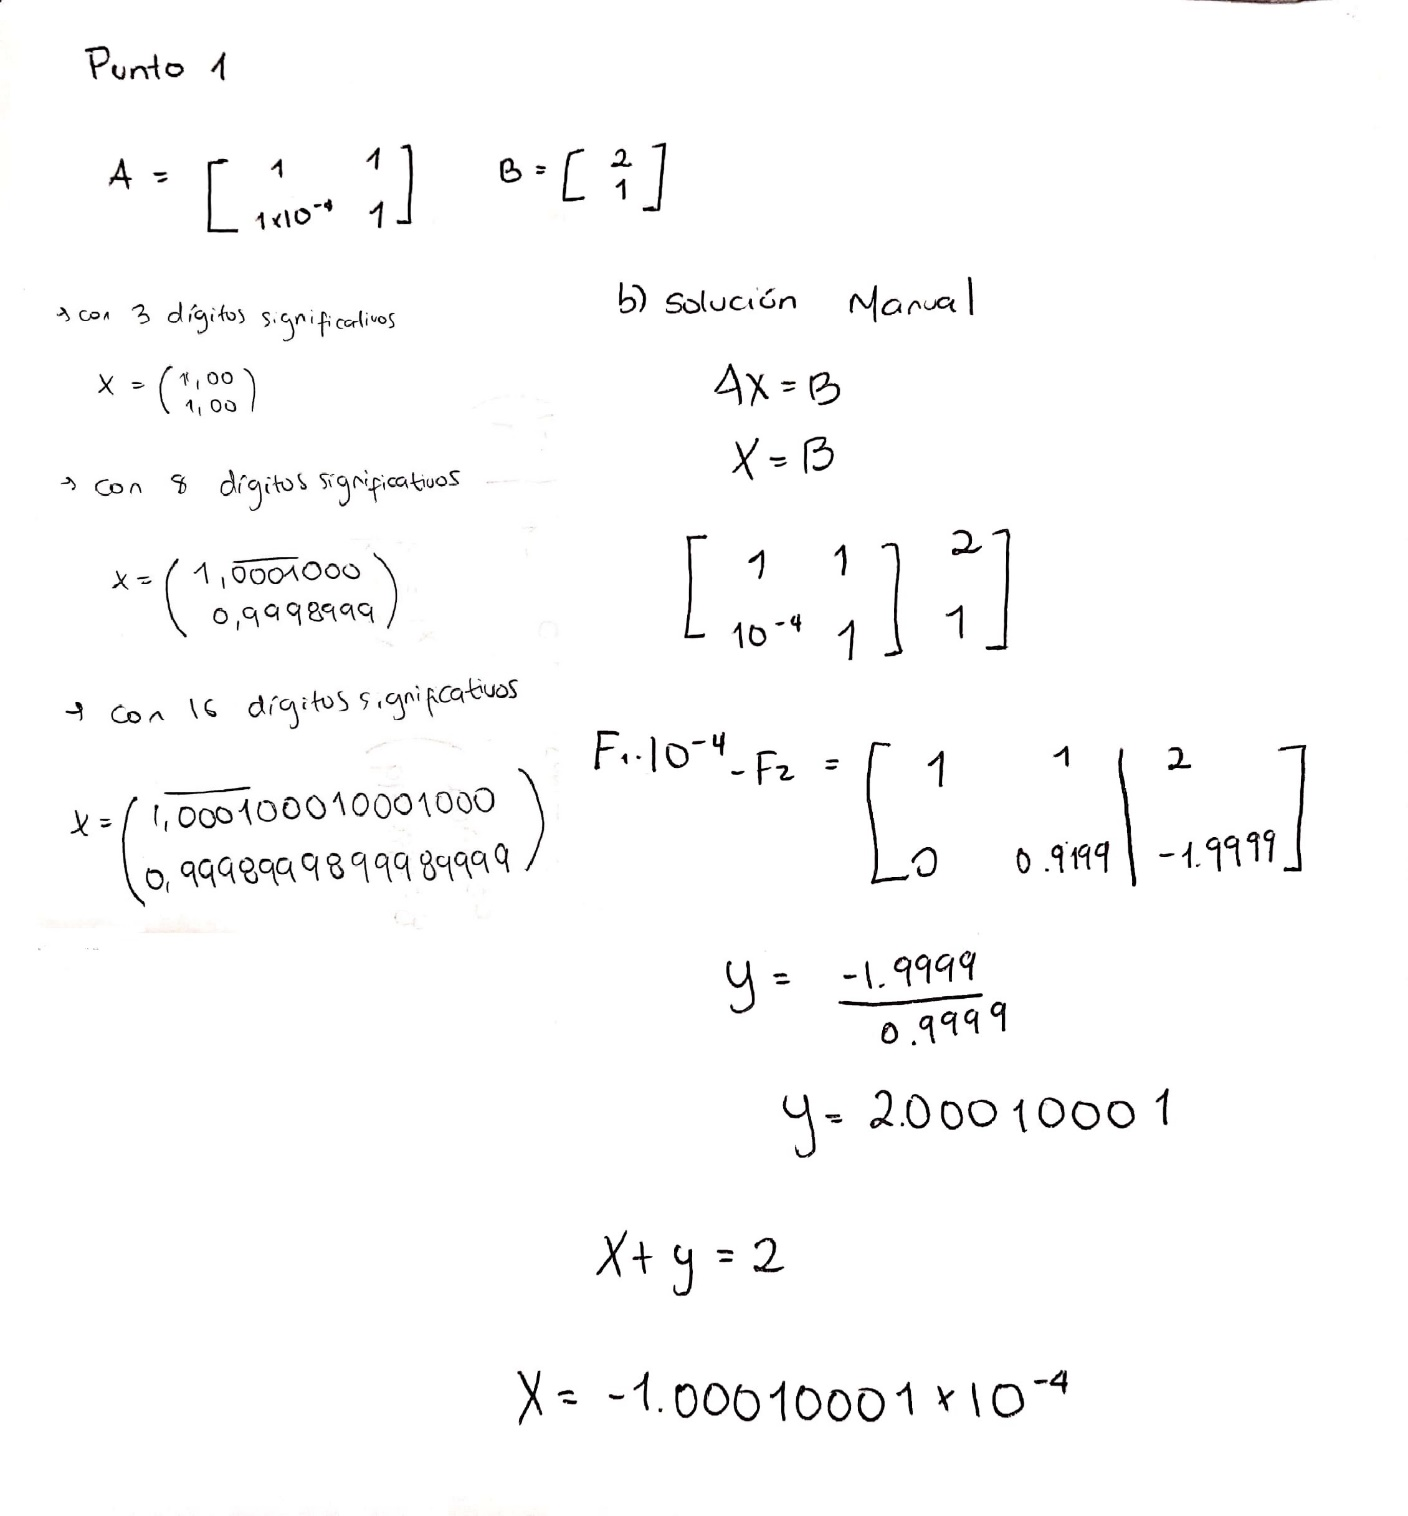 Punto 1
A = [ 1 1
1x10⁻⁴ 1 ]
B = [ 2
1 ]
→ con 3 dígitos significativos
X = ( 1,00
1,00 )
→ con 8 dígitos significativos
x = ( 1,0001000
0,9998999 )
→ con 16 dígitos significativos
x = ( 1,000100010001000
0,9998999899989999 )
b) Solución Manual
AX = B
X = B
[ 1 1 ] 2 ]
[ 10⁻⁴ 1 ] 1 ]
F₁·10⁻⁴ - F₂ = [ 1 1 | 2 ]
[ 0 0.9199 | -1.9999 ]
y = -1.9999
0.9999
y = 2.00010001
X + y = 2
X = -1.00010001 x 10⁻⁴